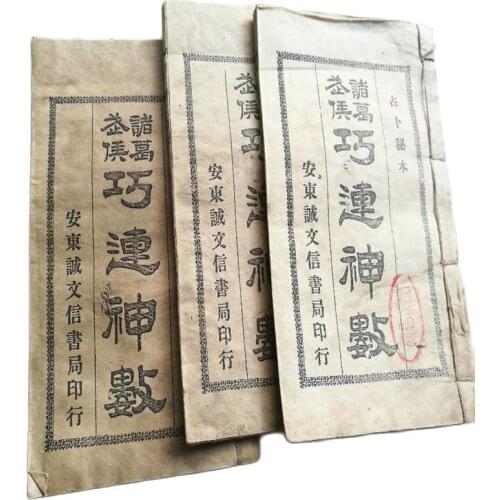 占卜秘本
諸葛
武侯
巧連神數
安東誠文信書局印行
諸葛
武侯
巧連神數
安東誠文信書局印行
諸葛
武侯
巧連神數
安東誠文信書局印行